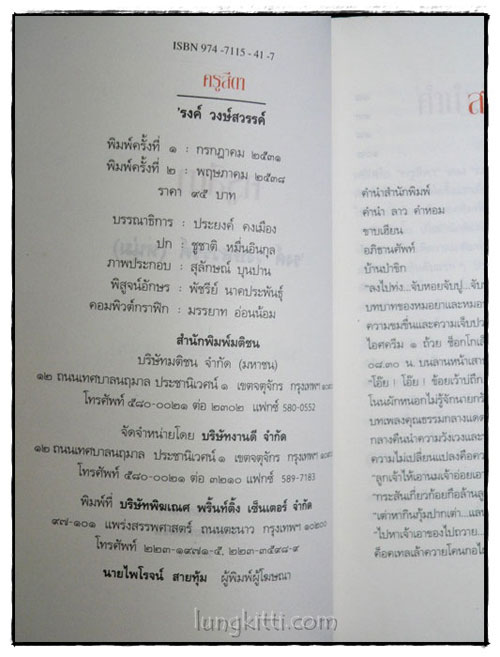 ISBN 974 -7115 - 41 -7
ครูสีดา
'รงค์ วงษ์สวรรค์
พิมพ์ครั้งที่ ๑ : กรกฎาคม ๒๕๓๑
พิมพ์ครั้งที่ ๒ : พฤษภาคม ๒๕๓๘
ราคา ๙๕ บาท
บรรณาธิการ : ประยงค์ คงเมือง
ปก : ชูชาติ หมื่นอินกุล
ภาพประกอบ : สุลักษณ์ บุนปาน
พิสูจน์อักษร : พัชรีย์ นาคประพันธุ์
คอมพิวต์กราฟิก : มรรยาท อ่อนน้อม
สำนักพิมพ์มติชน
บริษัทมติชน จำกัด (มหาชน)
๑๒ ถนนเทศบาลนฤมาล ประชานิเวศน์ ๑ เขตจตุจักร กรุงเทพฯ
โทรศัพท์ ๕๘๐-๐๐๒๑ ต่อ ๒๓๐๒ แฟกซ์ 580-0552
จัดจำหน่ายโดย บริษัทงานดี จำกัด
๑๒ ถนนเทศบาลนฤมาล ประชานิเวศน์ ๑ เขตจตุจักร กรุงเทพฯ
โทรศัพท์ ๕๘๐-๐๐๒๑ ต่อ ๓๒๑๐ แฟกซ์ 589-7183
พิมพ์ที่ บริษัทพิฆเณศ พริ้นท์ติ้ง เซ็นเตอร์ จำกัด
๙๗-๑๐๑ แพร่งสรรพศาสตร์ ถนนตะนาว กรุงเทพฯ ๑๐๒๐๐
โทรศัพท์ ๒๒๓-๑๙๗๑-๕, ๒๒๓-๓๕๙๘-๙
นายไพโรจน์ สายทุ้ม ผู้พิมพ์ผู้โฆษณา
ส
คำนำสำนักพิมพ์
คำนำ ลาว คำหอม
ขาบเขียน
อภิธานศัพท์
บ้านป่าซิก
"ลงไปทัง...จับหอยจับปู...จับ
บทบาทของหมอยาและหมอ
ความขมขื่นและความเจ็บปว
ไอศครีม ๑ ถ้วย ช็อกโกเล
๐๘.๓๐ น. บนลานหน้าเสา
"โอ๊ย ! โอ๊ย ! ข้อยเว้าบ่ถืก
โนนผักหนอกไม่รู้จักนายกรั
บทเพลงคุณธรรมกลางแดด
กลางคืนนำความวังเวงและ
ความไม่เปลี่ยนแปลงคือคว
"ลูกเจ้าให้เอานมเจ้าอ่อยเอา
"กระสันเกี่ยวก้อยกือล้านลู
"เต่าหากินกุ้มปากเต่า...แล
"ไปหาเจ้าเอาของไปถวาย...
คือคเทลเล้าควายโคนกอไผ
lungkitti.com